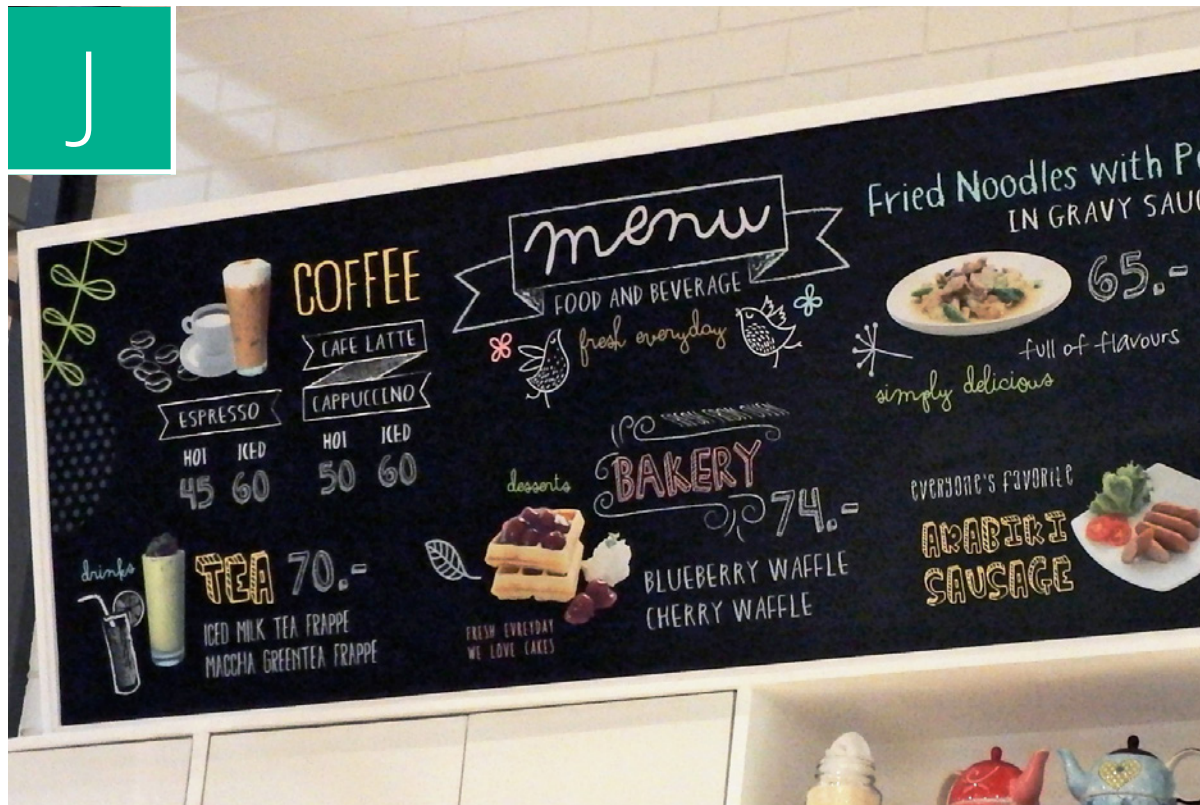 J
COFFEE
CAFE LATTE
CAPPUCCINO
ESPRESSO
HOT ICED
45 60
HOT ICED
50 60
drinks
TEA 70.-
ICED MILK TEA FRAPPE
MACCHA GREENTEA FRAPPE
menu
FOOD AND BEVERAGE
fresh everyday
FRESH FROM OVEN
desserts
BAKERY
74.-
BLUEBERRY WAFFLE
CHERRY WAFFLE
FRESH EVREYDAY
WE LOVE CAKES
Fried Noodles with
IN GRAVY
65.-
full of flavours
simply delicious
everyone's favorite
ARABIKI
SAUSAGE